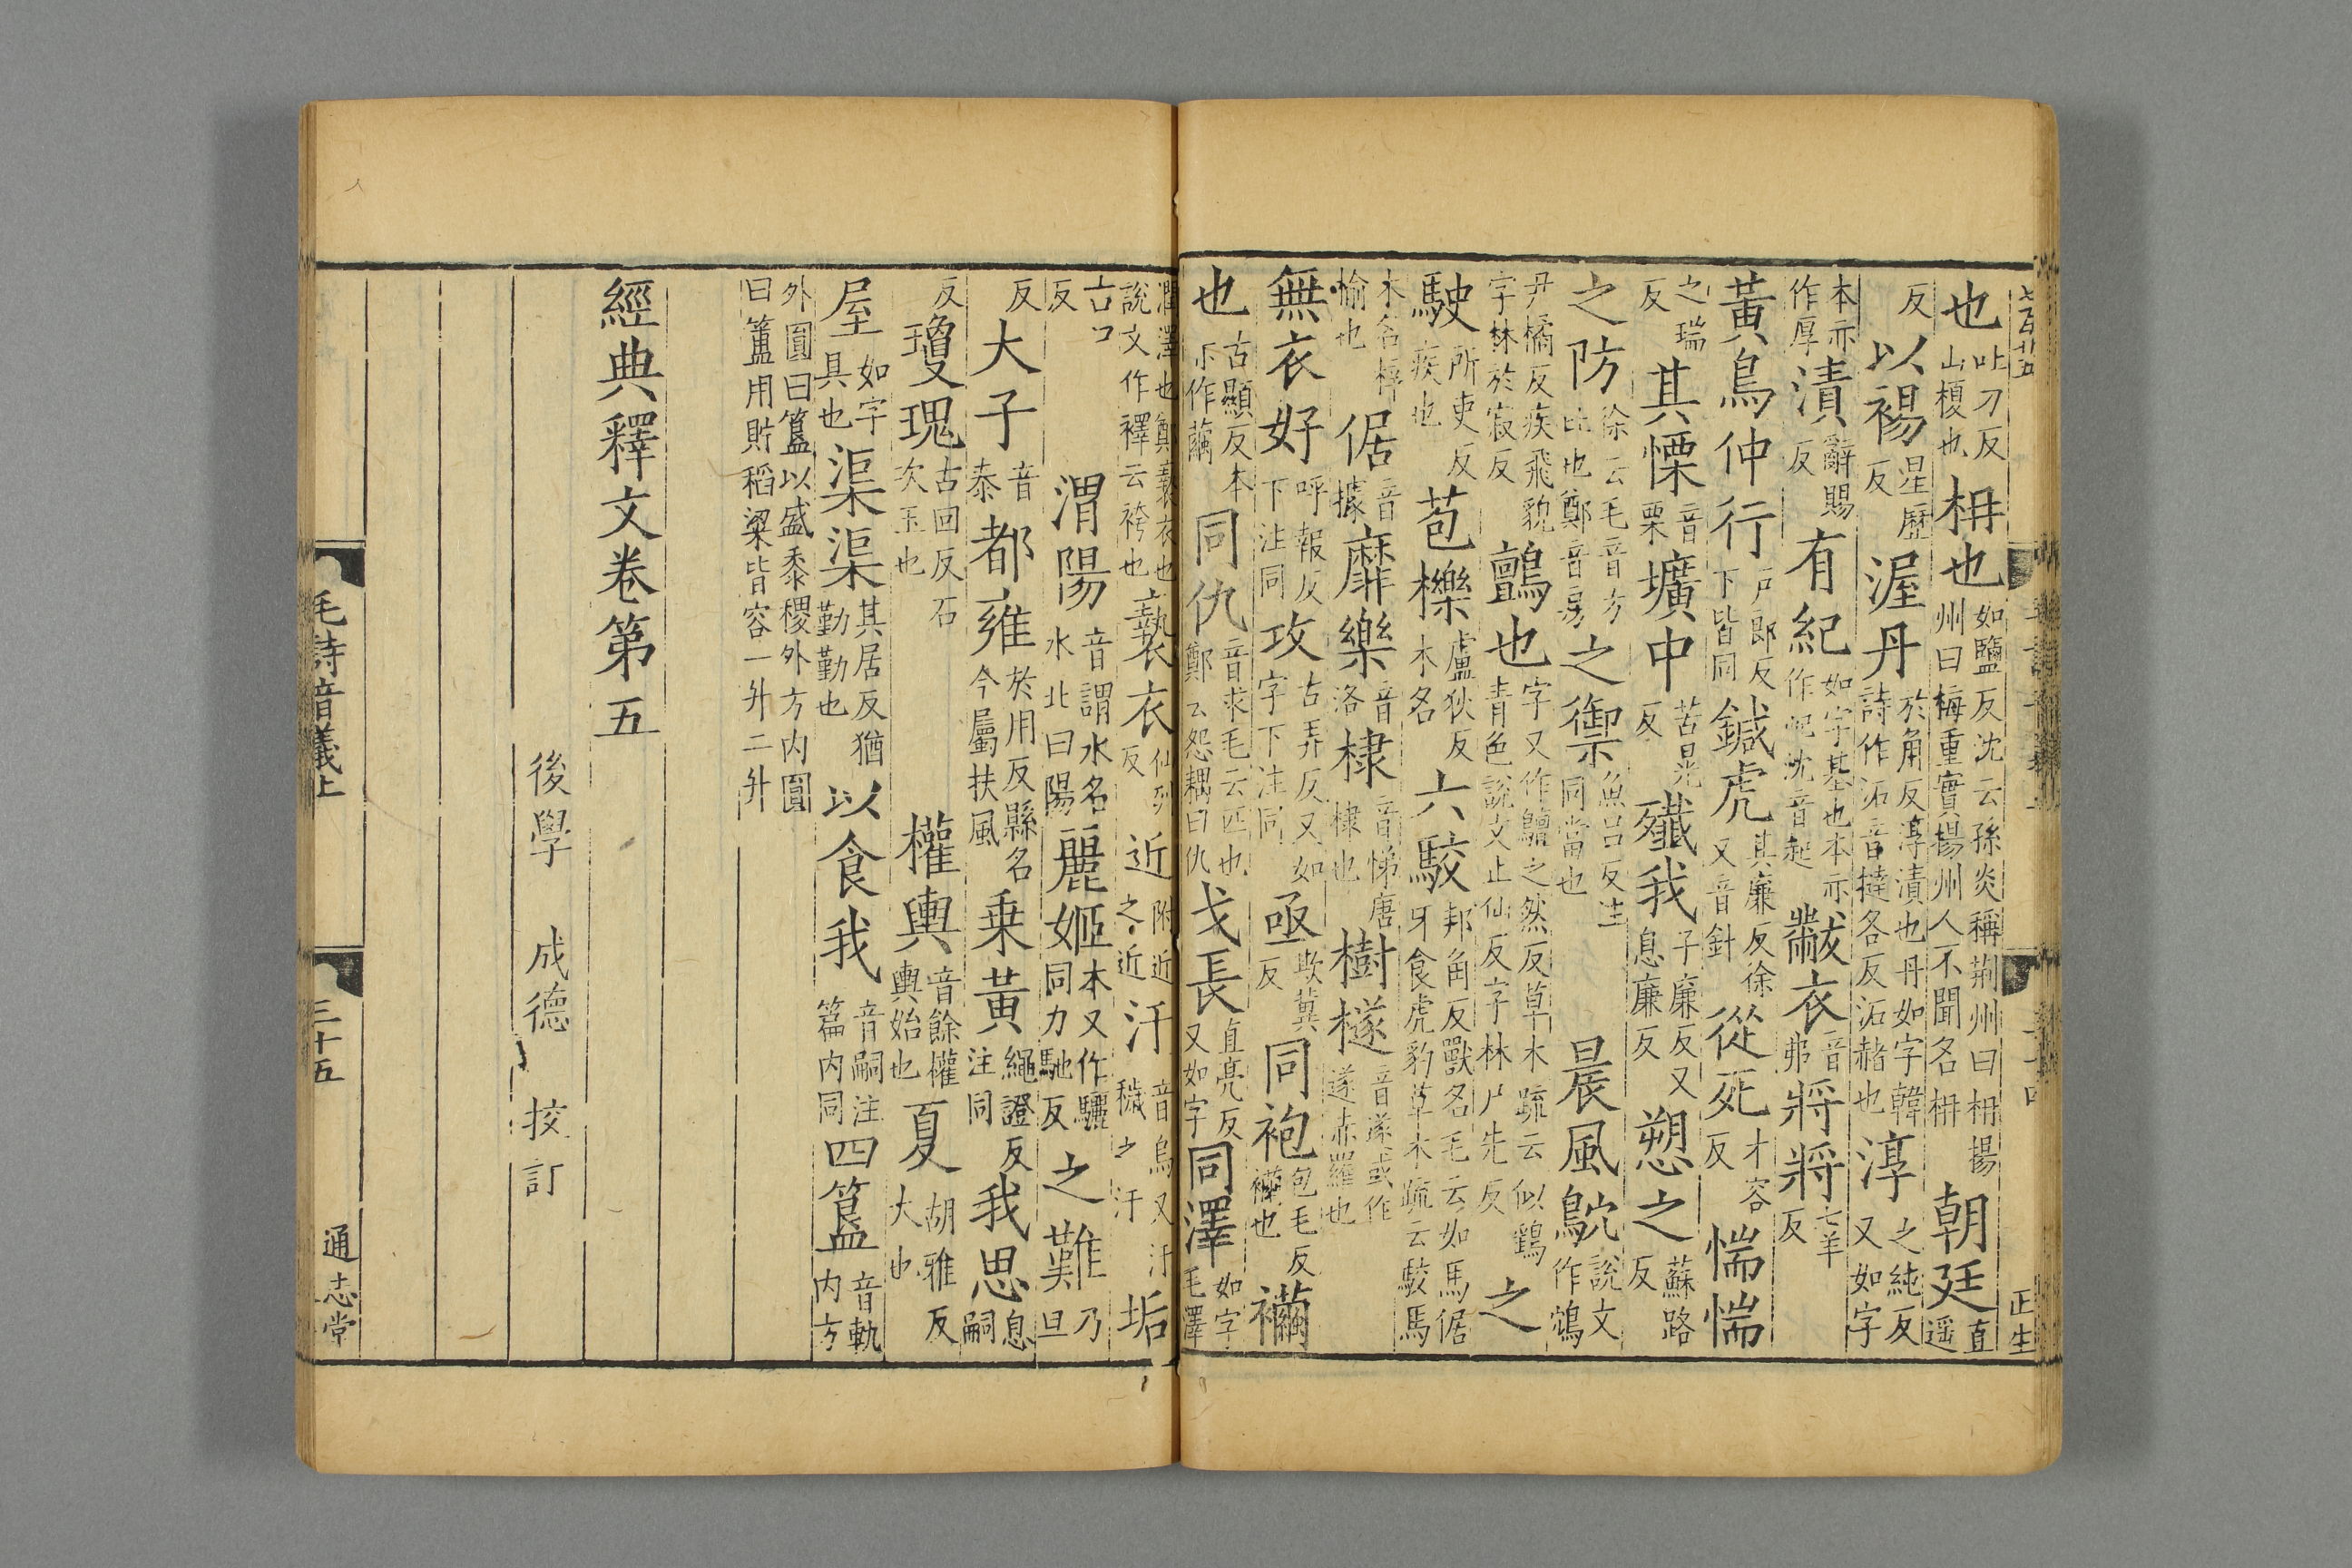 也吐刀反山榎也枏也如鹽反沈云孫炎稱荆州曰枏揚州曰梅重實揚州人不聞名枏朝廷直遥
反以裼星歴反渥丹於角反淳漬也丹如字韓詩作沰音撻各反沰赭也淳之純反又如字
本亦作厚漬辭賜反有紀如字基也本亦作屺沈音起黻衣音弗將將七羊反
黃鳥仲行戸郎反下皆同鍼虎其廉反徐又音針從死才容反惴惴
之瑞反其慄音栗壙中苦晃反殲我子廉反又息廉反愬之蘇路反
之防徐云毛音方比也鄭音房之禦魚吕反注同當也晨風鴥說文作鴪
尹橘反疾飛貌字林於寂反鸇也字又作鸇之然反草木疏云似鷂青色說文止仙反字林尸先反之
駛所吏反疾也苞櫟盧狄反木名六駮邦角反獸名毛云如馬倨牙食虎豹草木疏云駮馬
木名梓榆也倨音據靡樂音洛棣音悌唐棣也樹檖音遂或作遂赤羅也
無衣好呼報反下注同攻古弄反又如字下注同亟欺冀反同袍包毛反襺也襺
也古顯反本亦作繭同仇音求毛云匹也鄭云怨耦曰仇戈長直亮反又如字同澤如字毛澤
潤澤也鄭褻衣也說文作襗云袴也褻衣仙列反近附近之近汙音烏又汙穢之汙垢
古口反渭陽音謂水名水北曰陽麗姬本又作驪同力馳反之難乃旦
反大子音泰都雍於用反縣名今屬扶風乗黃繩證反注同我思息嗣
反瓊瑰古回反石次玉也權輿音餘權輿始也夏胡雅反大也
屋如字具也渠渠其居反猶勤勤也以食我音嗣注篇内同四簋音軌内方
外圓曰簋以盛黍稷外方内圓曰簠用貯稻粱皆容一斗二升
經典釋文卷第五
後學 成德 挍訂
毛詩音義上
三十五
通志堂